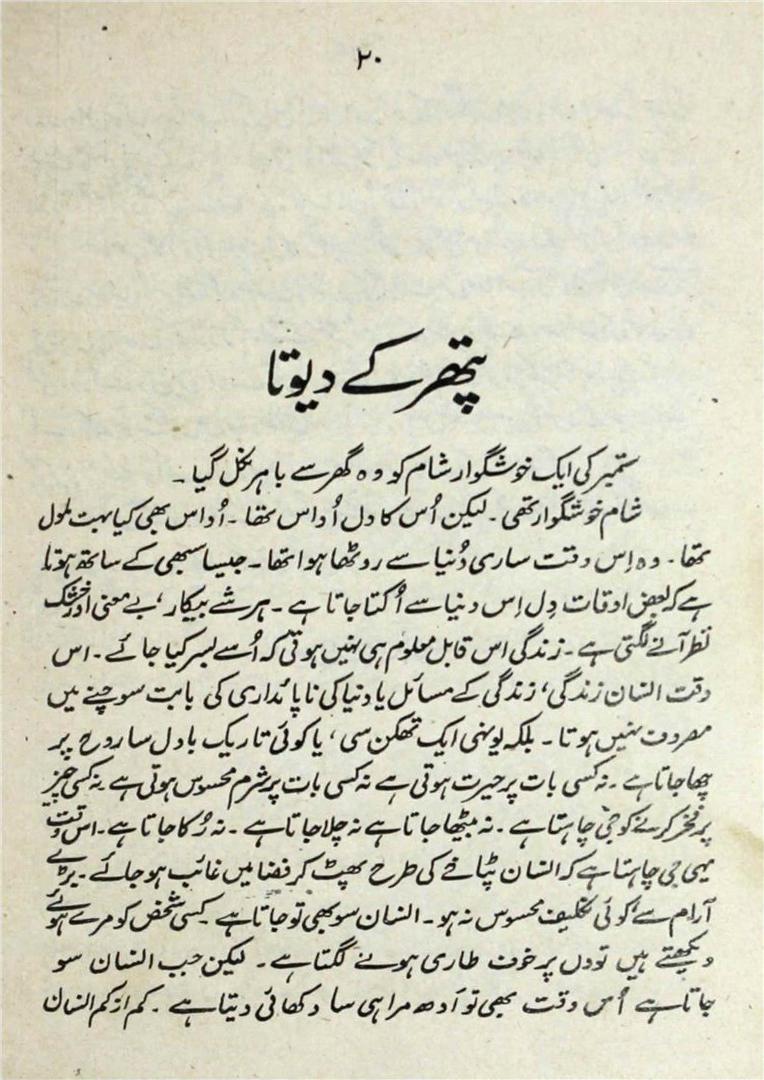 ۲۰
پتھر کے دیوتا
ستمبر کی ایک خوشگوار شام کو وہ گھر سے باہر نکل گیا۔
شام خوشگوار تھی۔ لیکن اُس کا دل اُداس تھا۔ اُداس بھی کیا بہت ملول
تھا۔ وہ اِس وقت ساری دُنیا سے روٹھا ہوا تھا۔ جیسا سبھی کے ساتھ ہوتا
ہے کہ بعض اوقات دِل اِس دنیا سے اُکتا جاتا ہے۔ ہر شے بیکار، بے معنی اور خشک
نظر آنے لگتی ہے۔ زندگی اس قابل معلوم ہی نہیں ہوتی کہ اُسے بسر کیا جائے۔ اس
وقت انسان زندگی، زندگی کے مسائل یا دنیا کی ناپائداری کی بابت سوچنے میں
مصروف نہیں ہوتا۔ بلکہ یونہی ایک تھکن سی، یا کوئی تاریک بادل سا روح پر
چھا جاتا ہے۔ نہ کسی بات پر حیرت ہوتی ہے نہ کسی بات پر شرم محسوس ہوتی ہے۔ نہ کسی چیز
پر فخر کرنے کو جی چاہتا ہے۔ نہ بیٹھا جاتا ہے نہ چلا جاتا ہے۔ نہ رُکا جاتا ہے۔ اس وقت
یہی جی چاہتا ہے کہ انسان پٹاخے کی طرح پھٹ کر فضا میں غائب ہو جائے۔ بڑے
آرام سے، کوئی تکلیف محسوس نہ ہو۔ انسان سو بھی تو جاتا ہے۔ کسی شخص کو مرے ہوئے
دیکھتے ہیں تو دل پر خوف طاری ہونے لگتا ہے۔ لیکن جب انسان سو
جاتا ہے اُس وقت بھی تو اَدھ مرا ہی سا دکھائی دیتا ہے۔ کم از کم انسان